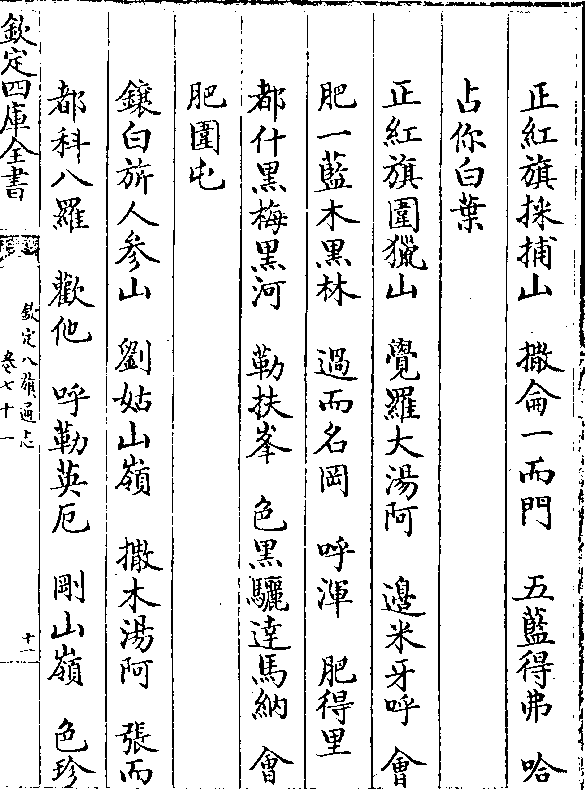 正紅旗採捕山　撒侖一而門　五藍得弗　哈
占你白葉
正紅旗圍獵山　覺羅大湯阿　邊米牙呼　㑹
肥一藍木黒林　過而名岡　呼渾　肥得里
都什黒梅黒河　勒扶峯　色黒驪達馬納　㑹
肥圍屯
鑲白旂人參山　劉姑山嶺　撒木湯阿　張而
都科八羅　歡他　呼勒英厄　剛山嶺　色珍
欽定四庫全書
欽定八旗通志
卷七十一
十一